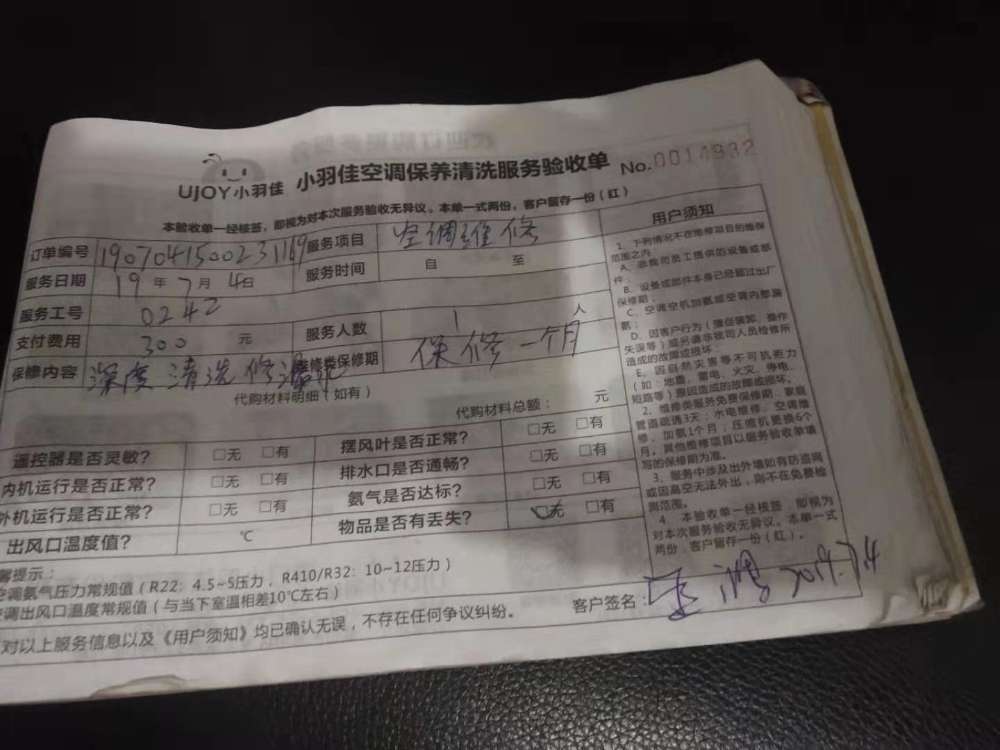 UJOY小羽佳 小羽佳空调保养清洗服务验收单 No.0014932
本验收单一经核签，即视为对本次服务验收无异议。本单一式两份，客户留存一份（红）
订单编号 1907041500231169 服务项目 空调维修
服务日期 19年7月4日 服务时间 自 至
服务工号 0242
支付费用 300 元 服务人数 1 人
保修内容 深度清洗修漏水 维修类保修期 保修一个月
代购材料明细（如有） 代购材料总额： 元
遥控器是否灵敏？ □无 □有 摆风叶是否正常？ □无 □有
内机运行是否正常？ □无 □有 排水口是否通畅？ □无 □有
外机运行是否正常？ □无 □有 氨气是否达标？ □无 □有
出风口温度值？ ℃ 物品是否有丢失？ □无 □有
用户须知
1、下列情况不在维修项目的维保
范围之内
A、非我司员工提供的设备或部
件；
B、设备或部件本身已经超过出厂
保修期；
C、空调空机加氨或空调内部漏
氨；
D、因客户行为（擅自装卸、操作
失误等）或另请非我司人员检修所
造成的故障或损坏；
E、因自然灾害等不可抗拒力
（如：地震、雷电、火灾、停电、
短路等）原因造成的故障或损坏。
2、维修类服务免费保修期：家庭
管道疏通3天；水电维修、空调维
修、加氨1个月；压缩机更换6个
月。其他维修项目以服务验收单填
写的保修期为准。
3、服务中涉及出外墙如有防盗网
或因高空无法外出，则不在免费检
测范围。
4、本验收单一经核签，即视为
对本次服务验收无异议。本单一式
两份，客户留存一份（红）。
馨提示：
空调氨气压力常规值（R22：4.5~5压力，R410/R32：10~12压力）
空调出风口温度常规值（与当下室温相差10℃左右）
对以上服务信息以及《用户须知》均已确认无误，不存在任何争议纠纷。
客户签名： 2019.7.4